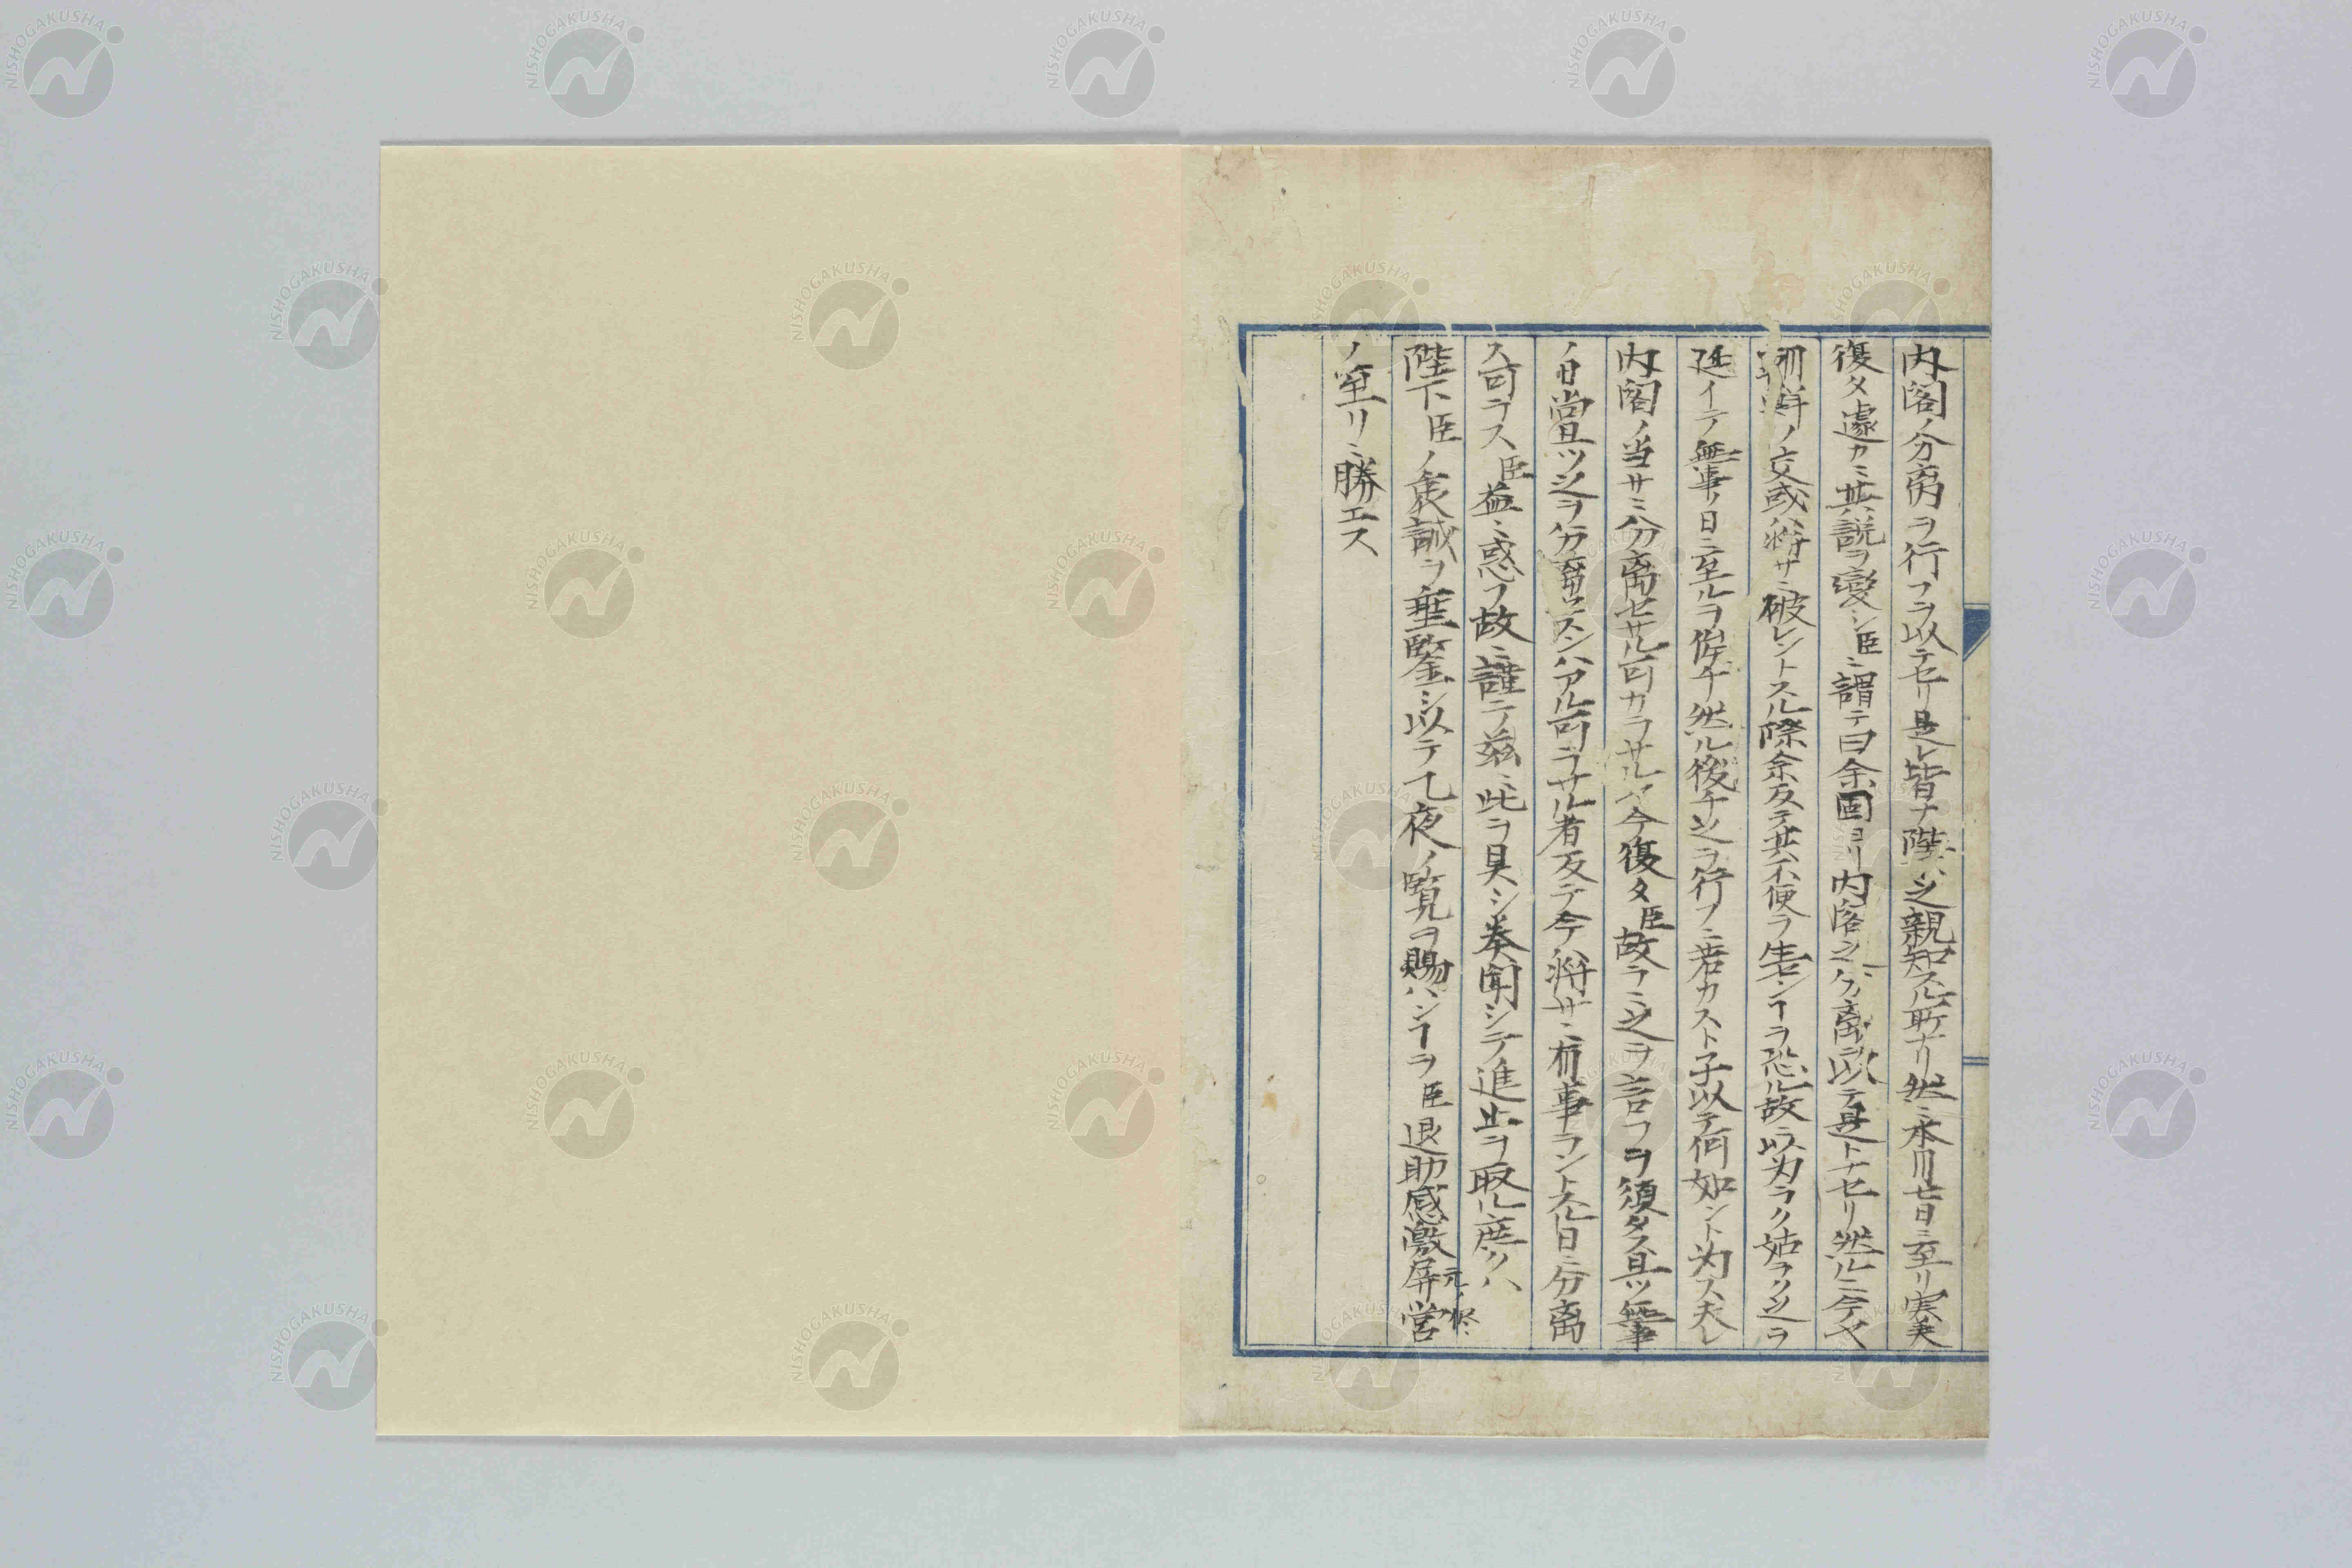 内閣ノ分离ヲ行フヲ以テセリ是レ皆ナ陛下之親知スル所ナリ然ニ本月七日ニ至リ実美
復タ遽カニ其説ヲ變シ臣ニ謂テ曰余固ヨリ内閣之分离ヲ以テ是トナセリ然ルニ今ヤ
朝鮮ノ交或ハ将サニ破レントスル際余反テ其不便ヲ生センヿヲ恐ル故ニ以为ラク姑ラク之ヲ
延イテ無事ノ日ニ至ルヲ俟チ然ル後チ之ヲ行フニ若カスト子以テ何如ント为ス夫レ
内閣ノ当サニ分离セサル可カラサルヤ今復タ臣故ラニ之ヲ言フヲ須タス且ツ無事
ノ日嘗且ツ之ヲ分离セスンハアル可ラサル者反テ今将サニ有事ラントスル日ニ分离
ス可ラス臣益ニ惑フ故ニ謹テ茲ニ此ヲ具シ奏聞シテ進止ヲ取ル庶クハ
陛下臣ノ衷誠ヲ垂鑒シ以テ乙夜ノ覧ヲ賜ハンヿヲ臣退助感激屏営
ノ至リニ勝エス
NISHOGAKUSHA